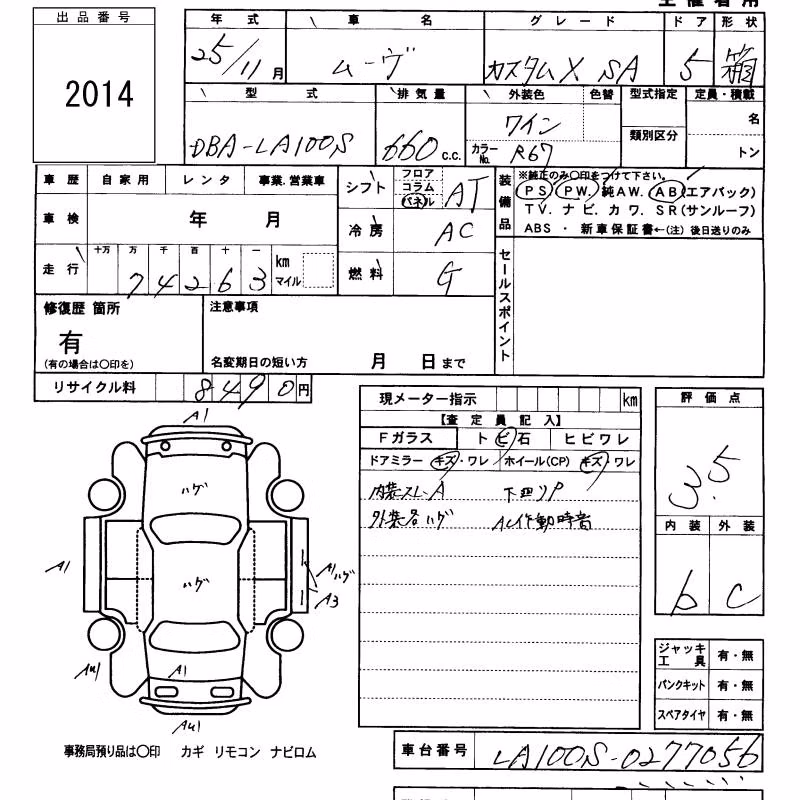 出品番号
2014
年式 車名 グレード ドア 形状
25/11月 ムーヴ カスタムX SA 5 箱
型式 排気量 外装色 色替 型式指定 定員・積載
DBA-LA100S 660 c.c. ワイン 名
カラーNo. R67 類別区分 トン
車歴 自家用 レンタ 事業.営業車
シフト フロア コラム パネル AT
装備品 ※純正のみ〇印をつけて下さい。
PS PW. 純AW. AB(エアバック)
TV. ナビ. カワ. SR(サンルーフ)
ABS ・ 新車保証書←(注) 後日送りのみ
車検 年 月
冷房 AC
走行 十万 万 千 百 十 一 km マイル
74263
燃料 G
セールスポイント
修復歴 箇所 注意事項
有
(有の場合は〇印を) 名変期日の短い方 月 日まで
リサイクル料 8490円
現メーター指示 km
【査定員記入】
Fガラス トビ石 ヒビワレ
ドアミラー キズ・ワレ ホイール(CP) キズ・ワレ
内装スレ-A 下回りP
外装各ハゲ AC作動時音
評価点
3.5
内装 外装
b C
A1
ハゲ
A1 ハゲ A1ハゲ
A3
AU1 A1
AU1
ジャッキ工具 有・無
パンクキット 有・無
スペアタイヤ 有・無
事務局預り品は〇印 カギ リモコン ナビロム
車台番号 LA100S-0277056